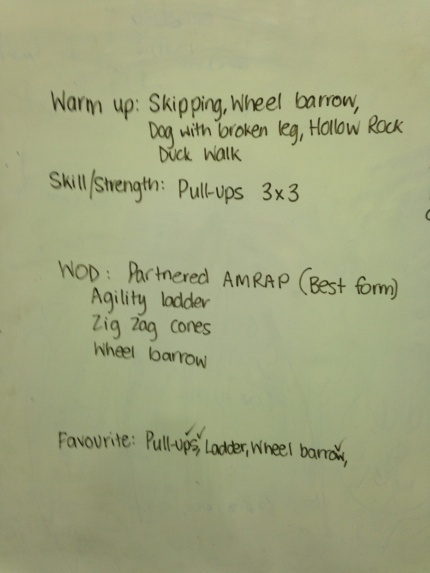 Warm up: Skipping, Wheel barrow,
Dog with broken leg, Hollow Rock
Duck Walk
Skill/Strength: Pull-ups 3x3
WOD: Partnered AMRAP (Best form)
Agility ladder
Zig Zag cones
Wheel barrow
Favourite: Pull-ups, Ladder, Wheel barrow,